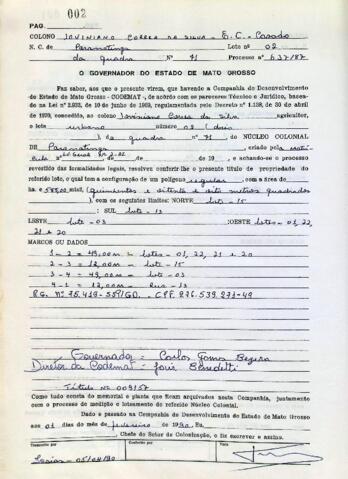 002
PAG.
COLONO Joviniano Correa da Silva - E.C. - Casado
N. C. de Paranatinga Lote nº 02
da quadra Nº 71 Processo nº 637/87
O GOVERNADOR DO ESTADO DE MATO GROSSO
Faz saber, aos que o presente virem, que havendo a Companhia do Desenvolvimento
do Estado de Mato Grosso - CODEMAT -, de acordo com os pareceres Técnico e Jurídico, basea-
do na Lei nº 2.933, de 10 de junho de 1969, regulamentada pelo Decreto nº 1.138, de 30 de abril
de 1970, concedido, ao colono Joviniano Correa da Silva agricultor,
o lote urbano número 02 (dois
), da quadra nº 71 do NÚCLEO COLONIAL
DE Paranatinga, criado pela matrí-
cula nº de de 19 , e achando-se o processo
revestido das formalidades legais, resolven conferir-lhe o presente título de propriedade do
referido lote, o qual tem a configuração de um polígono regular, com a área do
ha. e 588,00 mts2. (quinhentos e oitenta e oito metros quadrados
), com os seguintes limites: NORTE lote - 15
: SUL lote - 13
LESTE lote - 03 :OESTE lotes - 01, 22,
21 e 20
MARCOS OU DADOS
1 - 2 = 49,00m - lotes - 01, 22, 21 e 20
2 - 3 = 12,00m - lote - 15
3 - 4 = 49,00m - lote - 03
4 - 1 = 12,00m - Rua - 13
Governador = Carlos Gomes Bezerra
Diretor da Codemat = José Benedetti
Título Nº 009157
Como tudo consta do memorial e planta que ficam arquivados nesta Companhia, juntamente
com o processo de medição e loteamento do referido Núcleo Colonial.
Dado e passado na Companhia de Desenvolvimento do Estado de Mato Grosso
aos 01 dias do mês de fevereiro 1990. Eu,
Chefe do Setor de Colonização, o fiz escrever e assino.
Transcrito por
Conferido por
Visto
05/04/90